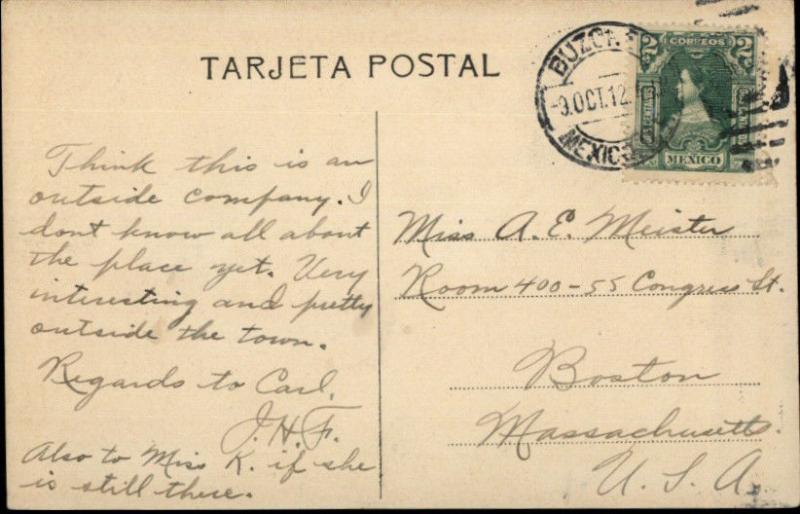 TARJETA POSTAL
BUZON
9.OCT.12
MEXICO
2 CORREOS 2
CENTAVOS
MEXICO
Think this is an
outside company. I
dont know all about
the place yet. Very
interesting and pretty
outside the town.
Regards to Carl.
J.H.F.
Also to Miss K. if she
is still there.
Miss A. E. Meister
Room 400-55 Congress St.
Boston
Massachusetts.
U. S. A.